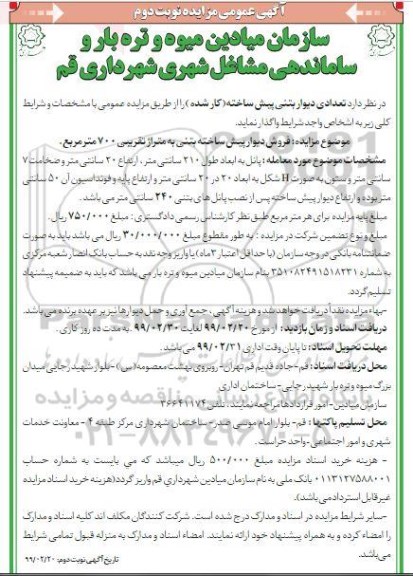 آگهی عمومی مزایده نوبت دوم
سازمان میادین میوه و تره بار و
ساماندهی مشاغل شهری شهرداری قم
در نظر دارد تعدادی دیوار بتنی پیش ساخته (کار شده) را از طریق مزایده عمومی با مشخصات و شرایط
کلی زیر به اشخاص واجد شرایط واگذار نماید.
موضوع مزایده: فروش دیوار پیش ساخته بتنی به متراژ تقریبی ۷۰۰ متر مربع.
مشخصات موضوع مورد معامله: پانل به ابعاد طول ۲۱۰ سانتی متر، ارتفاع ۲۰ سانتی متر و ضخامت ۷
سانتی متر و ستون به صورت H شکل به ابعاد ۲۰ در ۲۰ سانتی متر و ارتفاع پایه و فونداسیون آن ۵۰ سانتی
متر بوده و ارتفاع دیوار پیش ساخته پس از نصب پانل های بتنی ۲۴۰ سانتی متر می باشد.
مبلغ پایه مزایده برای هر متر مربع طبق نظر کارشناس رسمی دادگستری: مبلغ ۷۵۰/۰۰۰ ریال.
مبلغ و نوع تضمین شرکت در مزایده: به طور مقطوع مبلغ ۳۰/۰۰۰/۰۰۰ ریال می باشد باید به صورت
ضمانتنامه بانکی در وجه سازمان (با حداقل اعتبار ۳ ماه) یا واریز وجه نقد به حساب بانک انصار شعبه مرکزی
به شماره ۳۵۱۰۸۲۴۹۱۵۱۸۲۳۱ بنام سازمان میادین میوه و تره بار می باشد که باید به ضمیمه پیشنهاد
تسلیم گردد.
-بهاء مزایده نقداً دریافت خواهد شد و هزینه آگهی، جمع آوری و حمل دیوارها نیز بر عهده برنده می باشد.
دریافت اسناد و زمان بازدید: از مورخ ۹۹/۰۲/۲۰ لغایت ۹۹/۰۲/۳۰ به مدت ده روز کاری.
مهلت تحویل اسناد: تا پایان وقت اداری ۹۹/۰۲/۳۱ می باشد.
محل دریافت اسناد: قم-جاده قدیم قم تهران- روبروی بهشت معصومه(س)- بلوار شهید رجایی میدان
بزرگ میوه و تره بار شهید رجایی-ساختمان اداری
سازمان میادین- امور قراردادها مراجعه نمایند. تلفن ۳۶۶۴۱۱۷۴
محل تسلیم پاکتها: قم- بلوار امام موسی صدر- ساختمان شهرداری مرکز طبقه ۴ - معاونت خدمات
شهری و امور اجتماعی-واحد حراست.
- هزینه خرید اسناد مزایده مبلغ ۵۰۰/۰۰۰ ریال میباشد که می بایست به شماره حساب
۰۱۱۳۱۲۷۵۸۸۰۰۱ بانک ملی به نام سازمان میادین شهرداری قم واریز گردد(هزینه خرید اسناد مزایده
غیر قابل استرداد می باشد).
-سایر شرایط مزایده در اسناد و مدارک درج شده است. شرکت کنندگان مکلف اند کلیه اسناد و مدارک
را امضاء کرده و به همراه پیشنهاد خود ارائه نمایند. امضاء اسناد و مدارک به منزله قبول تمامی شرایط
می باشد.
تاریخ آگهی نوبت دوم: ۹۹/۰۲/۲۰